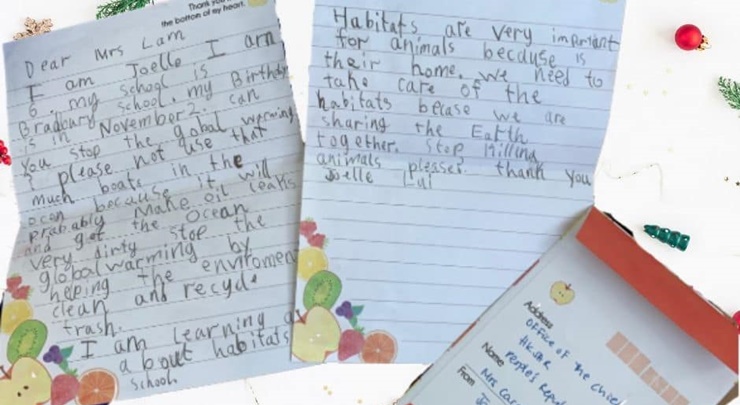 Thank you
the bottom of my heart.
Dear Mrs Lam
I am Joelle I am
6. my school is
Bradbury school. my Birthday
is in November 2. can
you stop the global warming
? please not use that
much boats in the
ocan because it will
probably make oil leaks
and get the Ocean
very dirty stop the
global warming by
heping the enviromen
clean and recycle
trash.
I am learning
about habitats
school.
Habitats are very important
for animals because is
their home. we need to
take care of the
habitats becase we are
sharing the Earth
together. Stop killing
animals please? thank you
Joelle Lui
Address
office of the chie
HKSAR
People's Repu
Name
Mrs Car
From